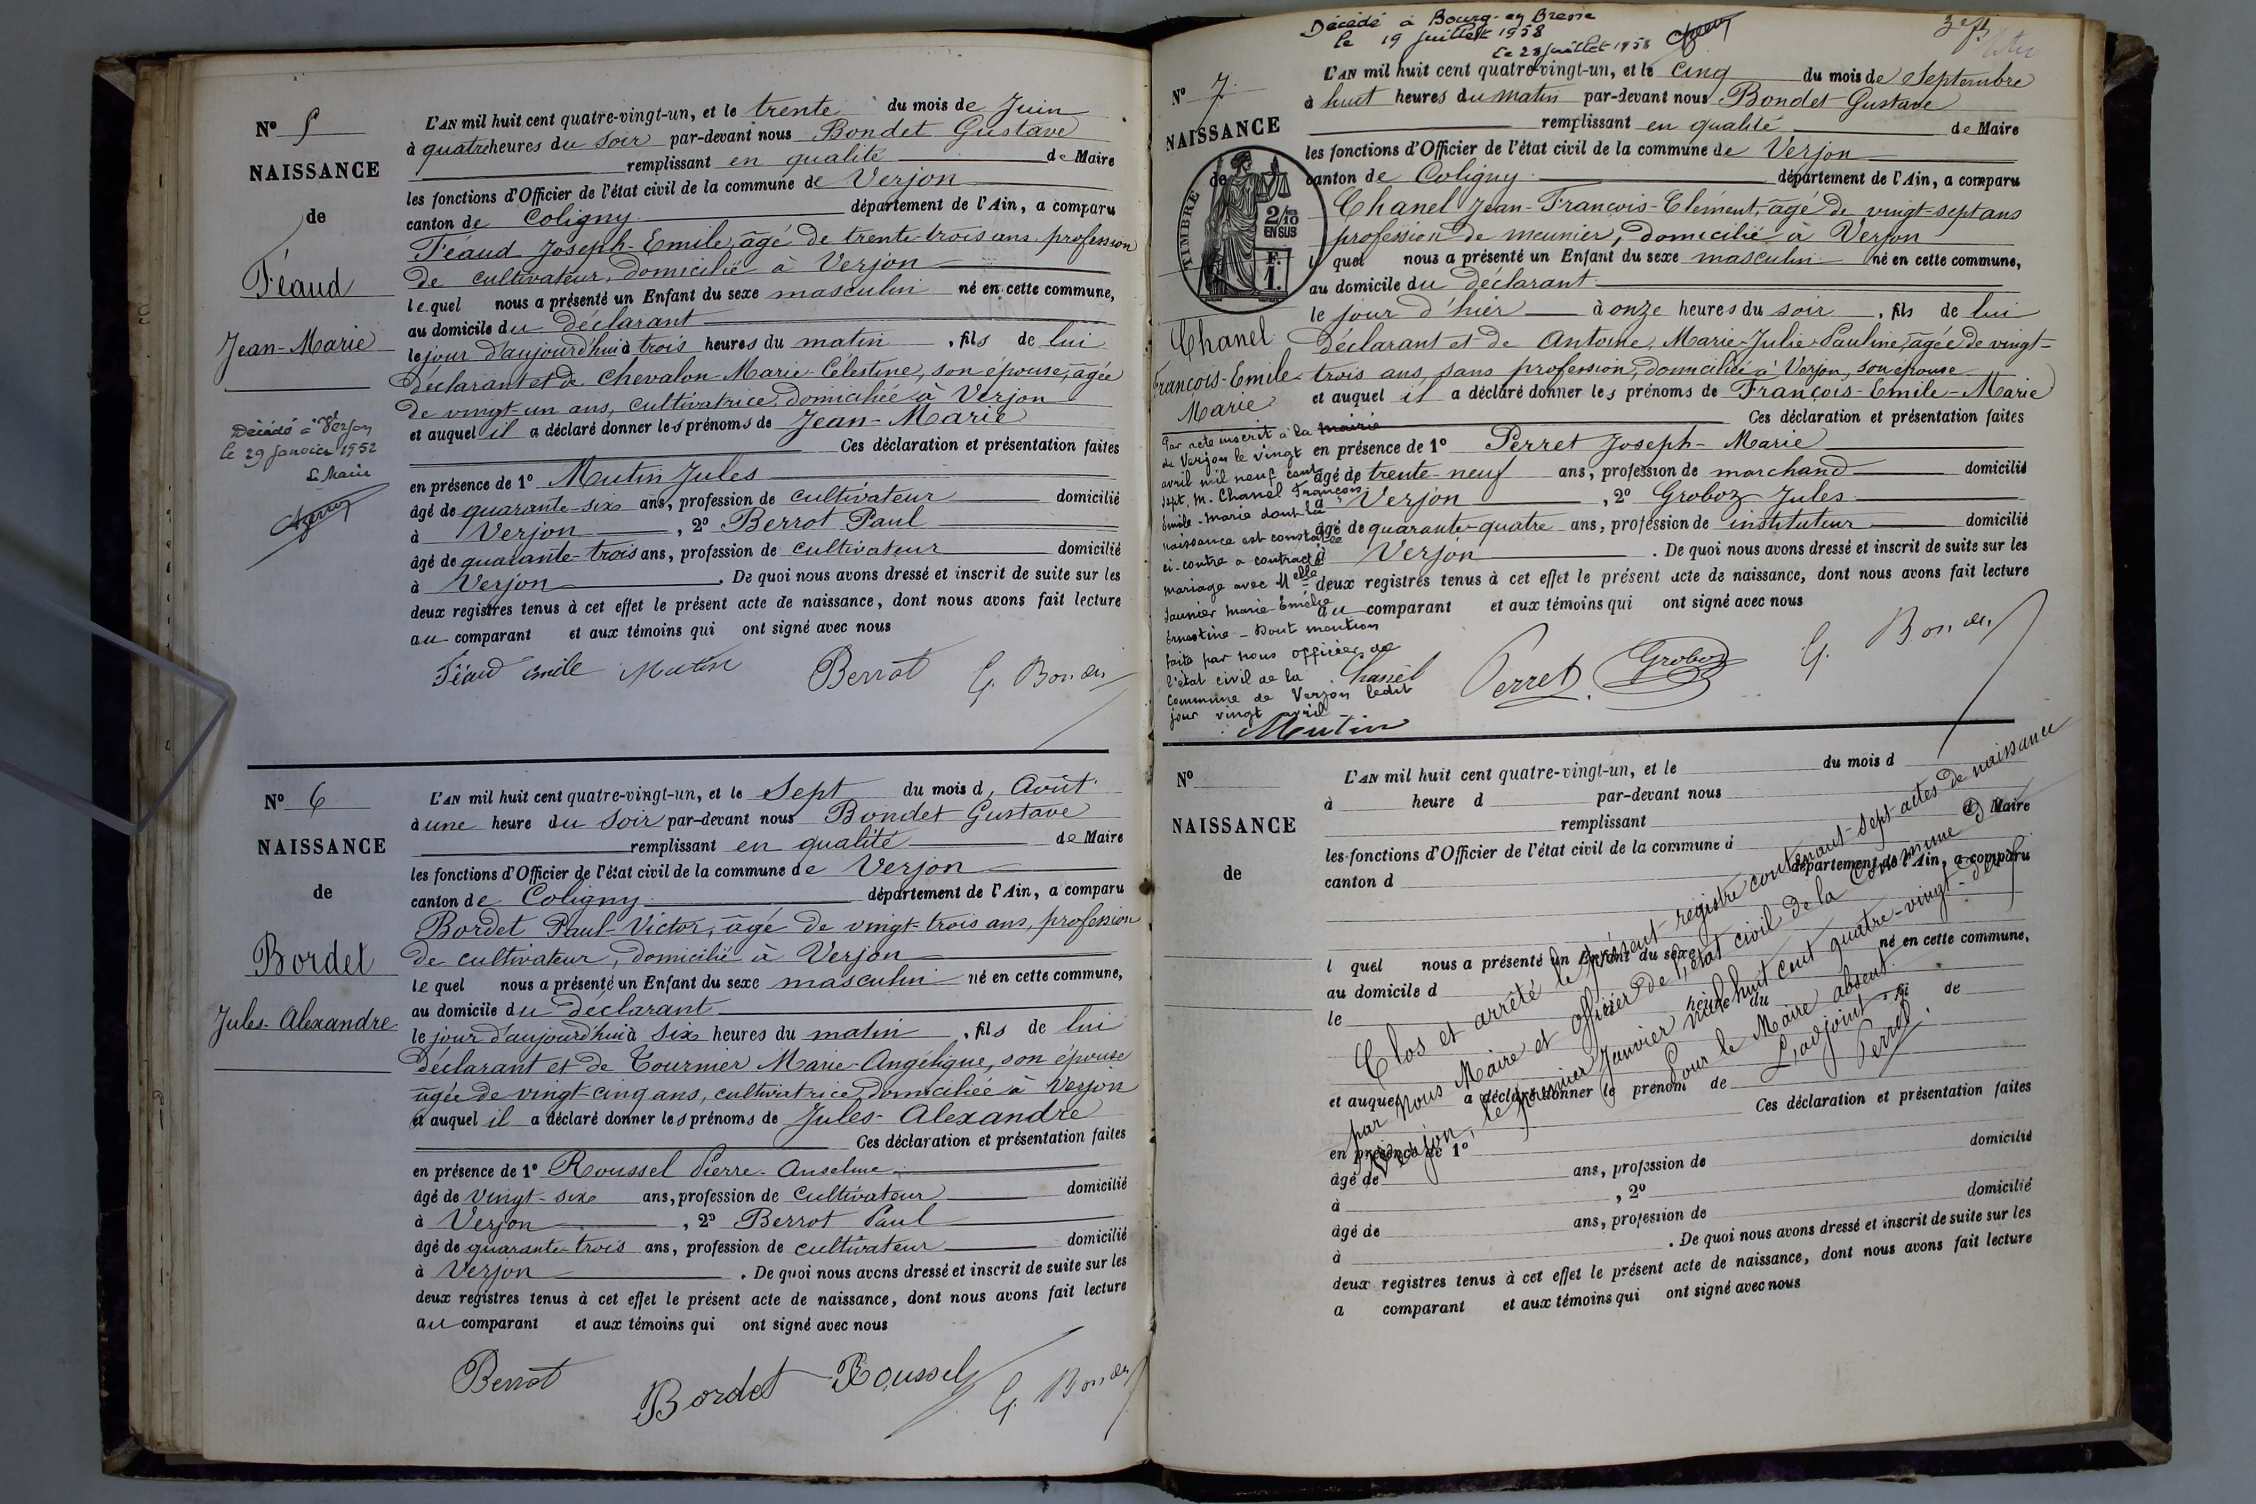 Nº 5
NAISSANCE
de
Féaud
Jean-Marie
Décédé à Verjon
le 29 Janvier 1952
Le Maire
L'AN mil huit cent quatre-vingt-un, et le trente du mois de Juin
à quatre heures du soir par-devant nous Bondet Gustave
remplissant en qualité de Maire
les fonctions d'Officier de l'état civil de la commune de Verjon
canton de Coligny département de l'Ain, a comparu
Féaud Joseph-Emile, âgé de trente-trois ans, profession
de cultivateur, domicilié à Verjon
lequel nous a présenté un Enfant du sexe masculin né en cette commune,
au domicile du déclarant
le jour d'aujourd'hui à trois heures du matin, fils de lui
déclarant et de Chevalon Marie-Célestine, son épouse, âgée
de vingt-un ans, cultivatrice, domiciliée à Verjon
et auquel il a déclaré donner les prénoms de Jean-Marie
Ces déclaration et présentation faites
en présence de 1º Mutin Jules
âgé de quarante-six ans, profession de cultivateur domicilié
à Verjon, 2º Berrot Paul
âgé de quarante-trois ans, profession de cultivateur domicilié
à Verjon. De quoi nous avons dressé et inscrit de suite sur les
deux registres tenus à cet effet le présent acte de naissance, dont nous avons fait lecture
au comparant et aux témoins qui ont signé avec nous
Féaud Emile Mutin Berrot G. Bondet
Nº 6
NAISSANCE
de
Bordet
Jules-Alexandre
L'AN mil huit cent quatre-vingt-un, et le Sept du mois d'Août
à une heure du soir par-devant nous Bondet Gustave
remplissant en qualité de Maire
les fonctions d'Officier de l'état civil de la commune de Verjon
canton de Coligny département de l'Ain, a comparu
Bordet Paul-Victor, âgé de vingt-trois ans, profession
de cultivateur, domicilié à Verjon
lequel nous a présenté un Enfant du sexe masculin né en cette commune,
au domicile du déclarant
le jour d'aujourd'hui à six heures du matin, fils de lui
déclarant et de Tournier Marie-Angélique, son épouse
âgée de vingt-cinq ans, cultivatrice, domiciliée à Verjon
et auquel il a déclaré donner les prénoms de Jules-Alexandre
Ces déclaration et présentation faites
en présence de 1º Roussel Pierre-Anselme
âgé de vingt-six ans, profession de cultivateur domicilié
à Verjon, 2º Berrot Paul
âgé de quarante-trois ans, profession de cultivateur domicilié
à Verjon. De quoi nous avons dressé et inscrit de suite sur les
deux registres tenus à cet effet le présent acte de naissance, dont nous avons fait lecture
au comparant et aux témoins qui ont signé avec nous
Berrot Bordet Roussel G. Bondet
Décédé à Bourg-en-Bresse
le 19 juillet 1958
Le 28 juillet 1958
Nº 7
NAISSANCE
de
TIMBRE
2/10
EN SUS
F.
1.
Chanel
François-Emile
Marie
Par acte inscrit à la mairie
de Verjon le vingt
avril mil neuf cent
sept, M. Chanel François
Emile-Marie dont la
naissance est constatée
ci-contre a contracté
mariage avec Melle
Saunier Marie-Emélie
Ernestine - Dont mention
faite par nous officier de
l'état civil de la
commune de Verjon ledit
jour vingt avril
Mutin
L'AN mil huit cent quatre-vingt-un, et le cinq du mois de Septembre
à huit heures du matin par-devant nous Bondet Gustave
remplissant en qualité de Maire
les fonctions d'Officier de l'état civil de la commune de Verjon
canton de Coligny département de l'Ain, a comparu
Chanel Jean-François-Clément, âgé de vingt-sept ans
profession de meunier, domicilié à Verjon
lequel nous a présenté un Enfant du sexe masculin né en cette commune,
au domicile du déclarant
le jour d'hier à onze heures du soir, fils de lui
déclarant et de Antoine, Marie-Julie-Pauline, âgée de vingt-
trois ans, sans profession, domiciliée à Verjon, son épouse
et auquel il a déclaré donner les prénoms de François-Emile-Marie
Ces déclaration et présentation faites
en présence de 1º Perret Joseph-Marie
âgé de trente-neuf ans, profession de marchand domicilié
à Verjon, 2º Groboz Jules
âgé de quarante-quatre ans, profession de instituteur domicilié
à Verjon. De quoi nous avons dressé et inscrit de suite sur les
deux registres tenus à cet effet le présent acte de naissance, dont nous avons fait lecture
au comparant et aux témoins qui ont signé avec nous
Chanel Perret Groboz G. Bondet
Nº
NAISSANCE
de
L'AN mil huit cent quatre-vingt-un, et le du mois d
à heure d par-devant nous
remplissant d Maire
les fonctions d'Officier de l'état civil de la commune d
canton d département de l'Ain, a comparu
l quel nous a présenté un Enfant du sexe né en cette commune,
au domicile d
le heure du , fi de
et auquel a déclaré donner le prénom de
Ces déclaration et présentation faites
en présence de 1º
âgé de ans, profession de domicilié
à , 2º
âgé de ans, profession de domicilié
à . De quoi nous avons dressé et inscrit de suite sur les
deux registres tenus à cet effet le présent acte de naissance, dont nous avons fait lecture
a comparant et aux témoins qui ont signé avec nous
Clos et arrêté le présent registre contenant sept actes de naissance
par Nous Maire et officier de l'état civil de la Commune de
Verjon, le premier Janvier mil huit cent quatre-vingt-deux
Pour le Maire absent.
L'adjoint
Perret